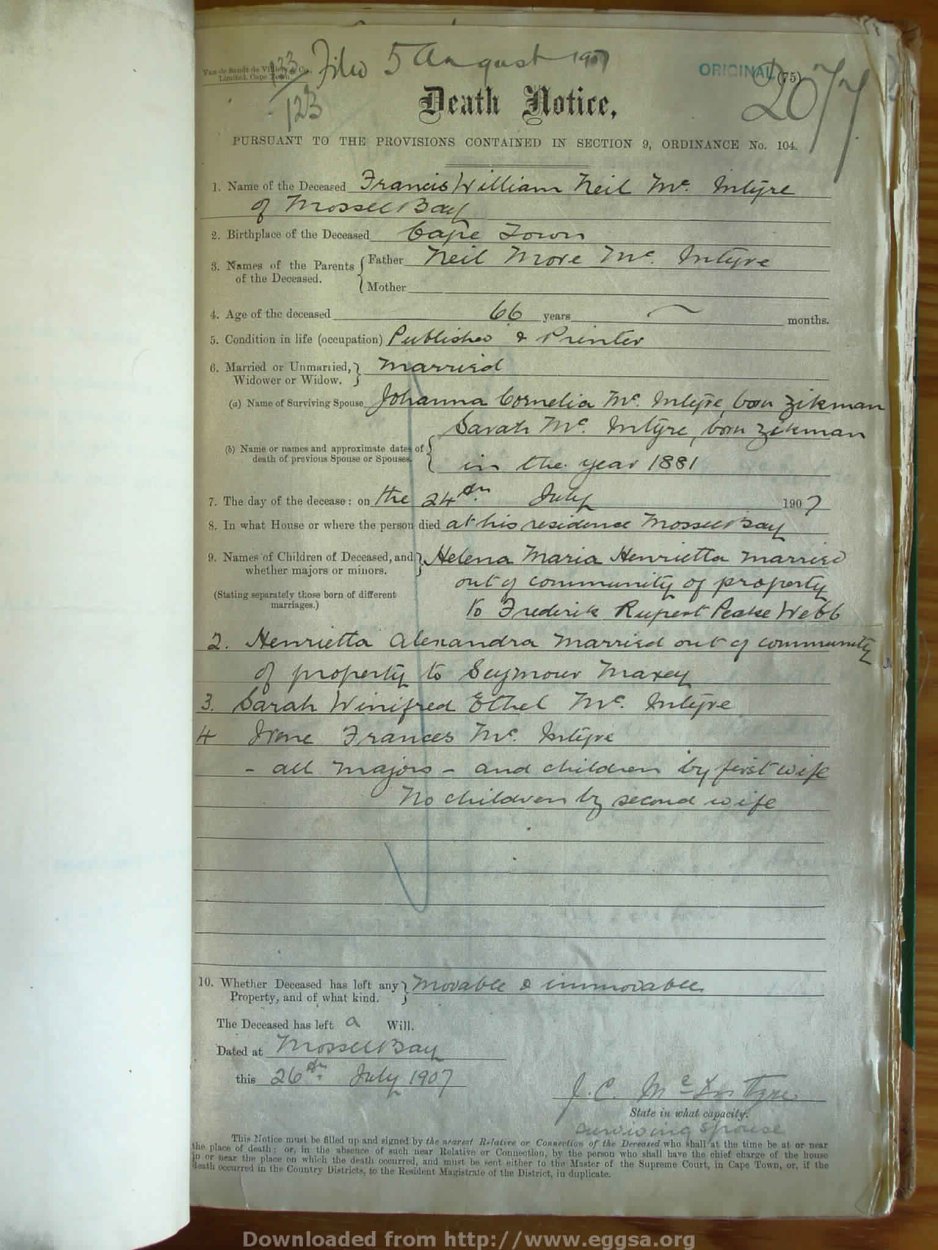 Van de Sandt de Villiers & Co.
Limited, Cape Town.
133
123
Filed 5 August 1907
ORIGINAL
(75)
2077
Death Notice,
PURSUANT TO THE PROVISIONS CONTAINED IN SECTION 9, ORDINANCE No. 104.
1. Name of the Deceased Francis William Neil Mc. Intyre
of Mossel Bay
2. Birthplace of the Deceased Cape Town
3. Names of the Parents of the Deceased. { Father Neil More Mc. Intyre
{ Mother
4. Age of the deceased 66 years — months.
5. Condition in life (occupation) Publisher & Printer
6. Married or Unmarried, Widower or Widow. } Married
(a) Name of Surviving Spouse Johanna Cornelia Mc. Intyre, born Zikman
Sarah Mc. Intyre, born Zikman
(b) Name or names and approximate dates of death of previous Spouse or Spouses. { in the year 1881
7. The day of the decease: on the 24th July 1907
8. In what House or where the person died at his residence Mossel Bay
9. Names of Children of Deceased, and whether majors or minors. } Helena Maria Henrietta married
out of community of property
(Stating separately those born of different marriages.)
to Frederik Rupert Peake Webb
2. Henrietta Alexandra married out of community
of property to Seymour Maxey
3. Sarah Winifred Ethel Mc. Intyre
4 Irene Frances Mc. Intyre
- all majors - and children by first wife
No children by second wife
10. Whether Deceased has left any Property, and of what kind. } Movable & immovable
The Deceased has left a Will.
Dated at Mossel Bay
this 26th July 1907
J. C. Mc Intyre
State in what capacity.
surviving spouse
This Notice must be filled up and signed by the nearest Relative or Connection of the Deceased who shall at the time be at or near
the place of death; or, in the absence of such near Relative or Connection, by the person who shall have the chief charge of the house
in or near the place on which the death occurred, and must be sent either to the Master of the Supreme Court, in Cape Town, or, if the
death occurred in the Country Districts, to the Resident Magistrate of the District, in duplicate.
Downloaded from http://www.eggsa.org